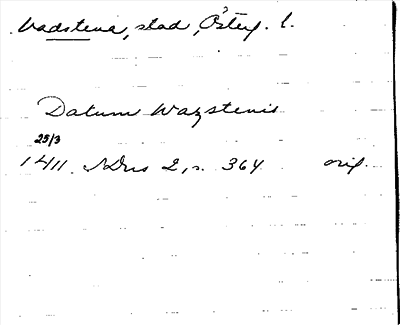 Vadstena, stad, Österg. l.
Datum Wazstenis
25/3
1411. SDns 2, s. 364 orig.